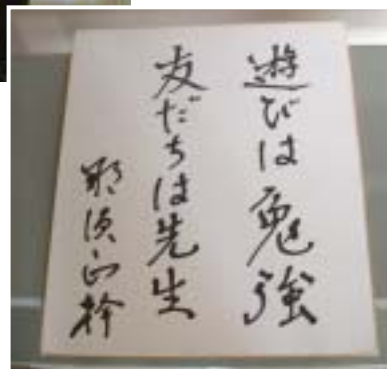 遊びは勉強
友だちは先生
那須正幹